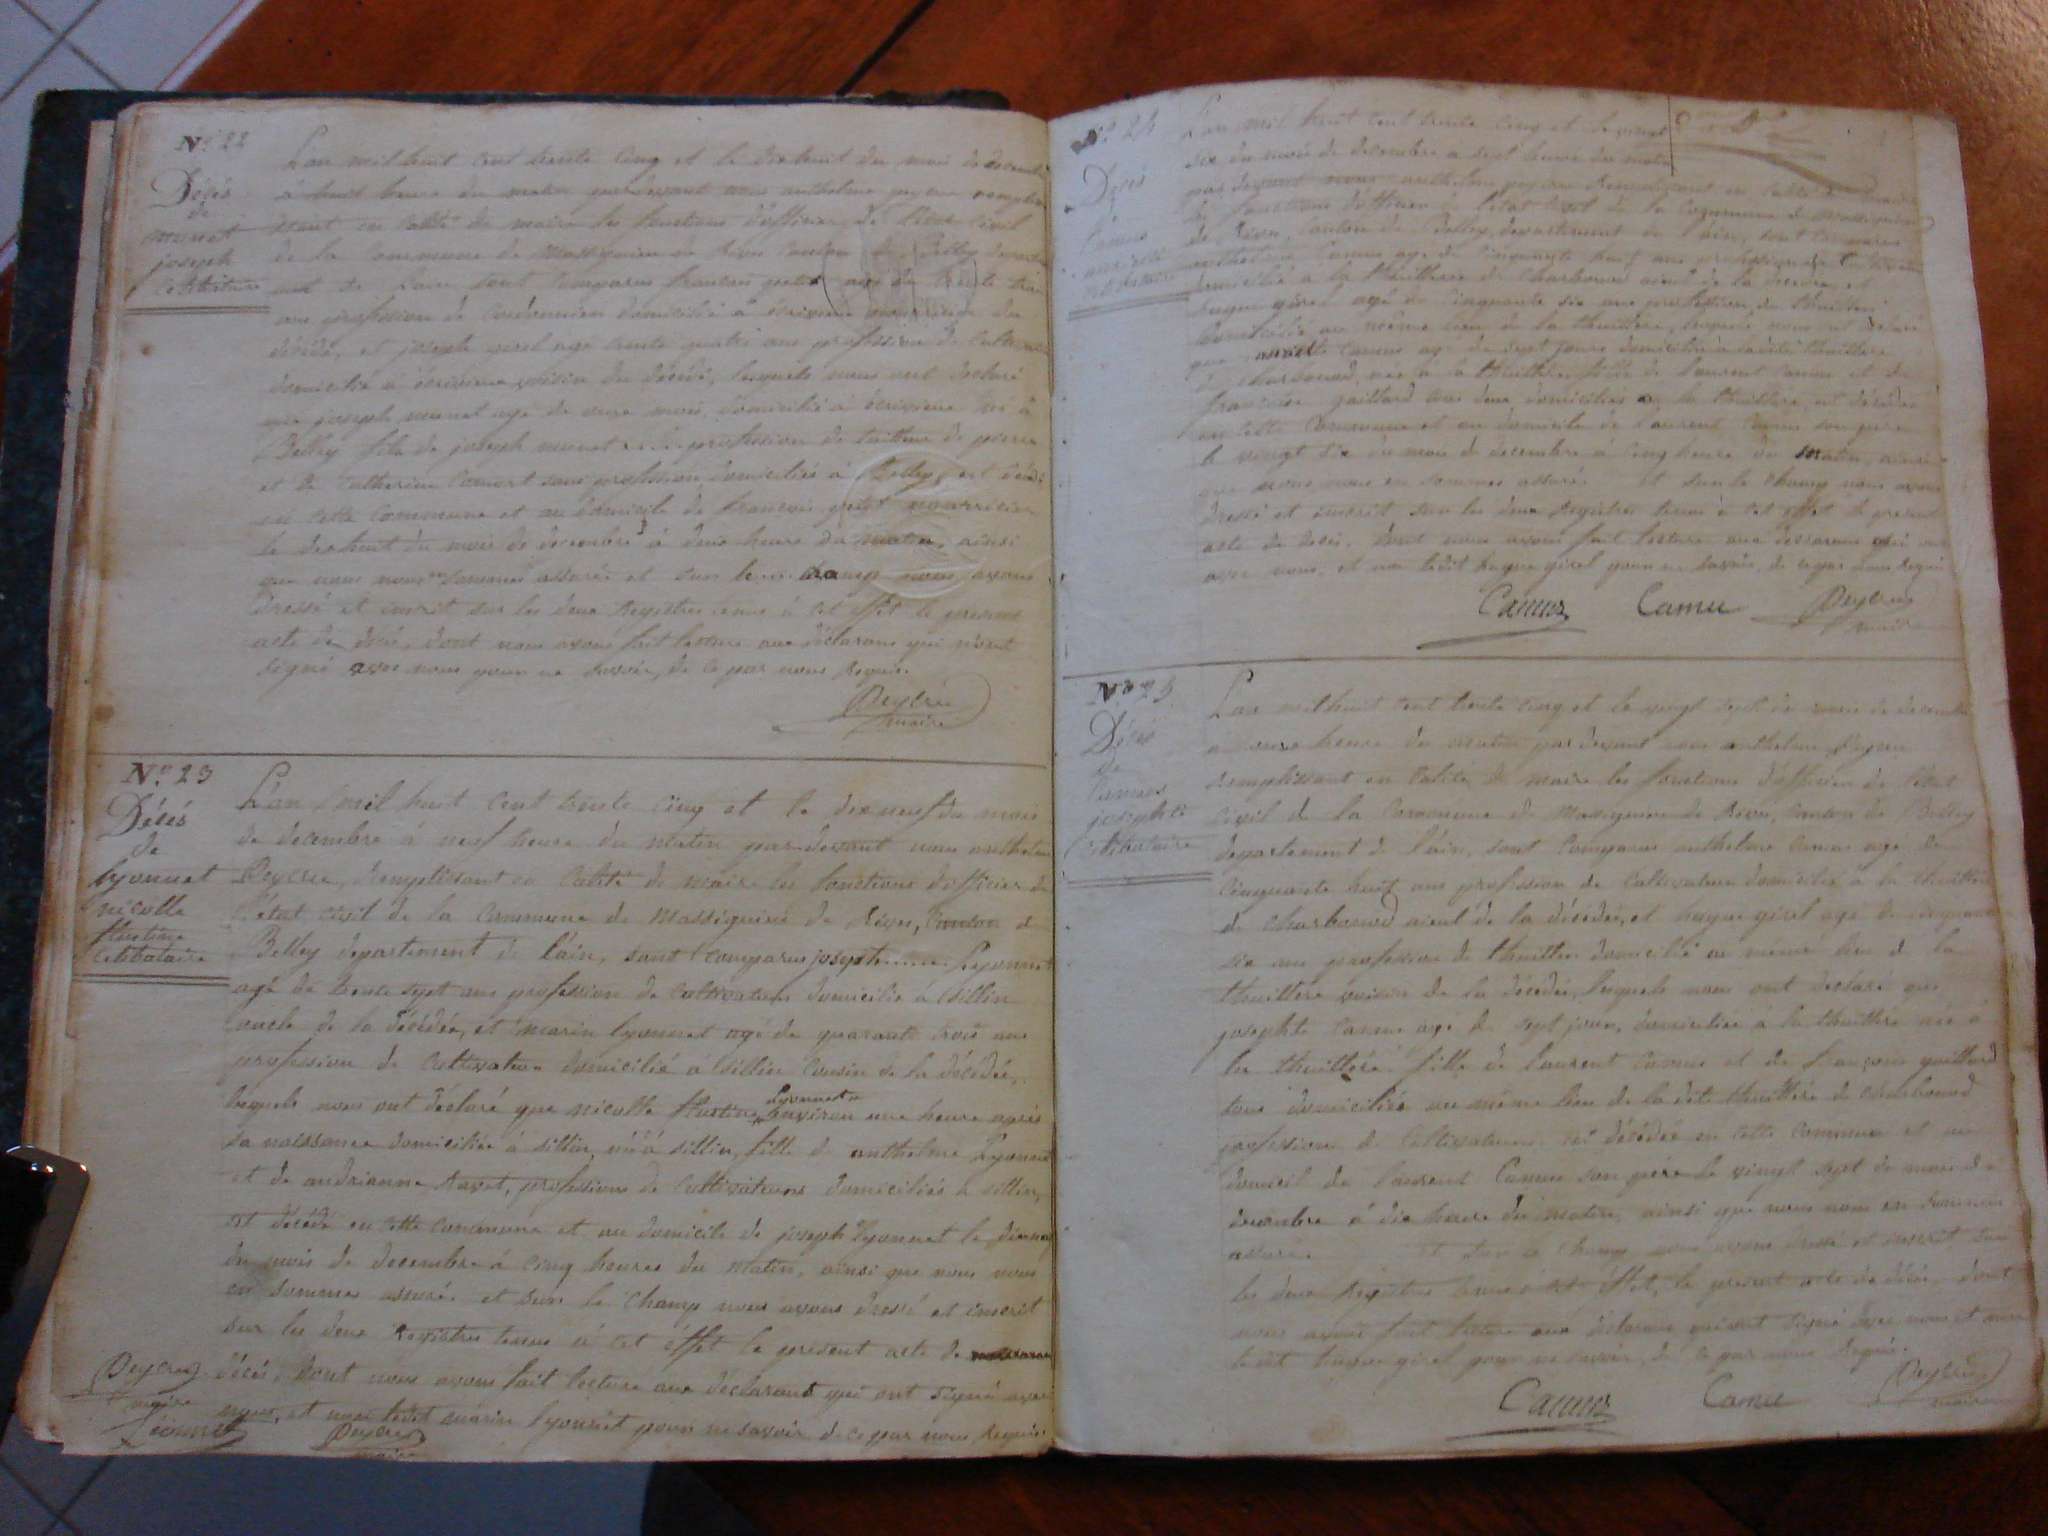 N.º 22
Décés
de
munet
joseph
Célibataire
L'an mil huit cent trente cinq et le dix huit du mois de decembre
à huit heure du matin pardevant nous anthelme peyene remplis
sant en calité de maire les fonctions d'officier de l'état civil
de la commune de Massignieu de Rives canton de Belley departe
ment de l'ain sont comparus francois agé de trente trois
ans profession de Cordonnier domicilié à écrivieux nourricier du
décédé, et joseph agé trente quatre ans profession de Cultivateur
domicilié à écrivieux voisin du décédé, lesquels nous ont déclaré
que joseph munet agé de onze mois, domicilié à écrivieux né à
Belley fils de joseph munet profession de tailleur de pierre
et de Catherine sans profession, domiciliés à Belley, est décédé
en cette commune et au domicile de francois nourricier
le dix huit du mois de decembre à deux heure du matin, ainsi
que nous nous en sommes assurés et sur le champ nous avons
dressé et inscrit sur les deux registres tenus à cet effet le present
acte de décé, dont nous avons fait lecture aux déclarans qui n'ont
signé avec nous pour ne savoir, de ce par nous Requis.
maire
N.º 23
Décés
de
Lyonnet
nicolle
Célibataire
L'an mil huit cent trente cinq et le dix neuf du mois
de decembre à neuf heure du matin par-devant nous anthelme
Remplissant en Calité de maire les fonctions d'officier de
l'état civil de la Commune de Massignieu de Rives, Canton de
Belley departement de l'ain, sont Comparus joseph Lyonnet
agé de trente sept ans profession de Cultivateur domicilié à Sillin
oncle de la décédée, et marin lyonnet agé de quarante trois ans
profession de Cultivateur domicilié à Sillin Cousin de la décédée,
lesquels nous ont déclaré que nicolle Lyonnet environ une heure après
sa naissance domiciliée à sillin, née à sillin, fille de anthelme Lyonnet
et de andrianne professions de Cultivateurs domiciliés à sillin,
est décédé en cette commune et au domicile de joseph Lyonnet le dix neuf
du mois de decembre à cinq heures du matin, ainsi que nous nous
en sommes assuré. et sur le Champ nous avons dressé et inscrit
sur les deux Registres tenus à cet éffet le present acte de
décés, dont nous avons fait lecture aux déclarans qui ont signé avec
nous, et non ledit marin lyonnet pour ne savoir de ce par nous Requis.
maire
maire
N.º 24
Décés
L'an mil huit cent trente cinq et le vingt
six du mois de decembre à sept heure du matin
par devant nous anthelme Remplissant en calité de maire
les fonctions d'officier de l'état civil de la Commune de Massignieu
de Rives, Canton de Belley, departement de l'ain, sont Comparus
anthelme Camus agé de cinquante huit ans profession de
domicilié à la thuillère de charbonod aieul de la décédée, et
hugue girel agé de Cinquante six ans profession de thuillier
domicilié au même lieu de la thuillère, lesquels nous ont déclaré
que Camus agé de sept jours domiciliée à
charbonod, née à la thuillère fille de laurent Camus et de
francoise gaillard tous deux domiciliés à la thuillère, est décédée
en cette Commune et au domicile de laurent Camus son père
le vingt six du mois de decembre à cinq heure du matin, ainsi
que nous nous en sommes assuré. et sur le Champ nous avons
dressé et inscrit sur les deux registres tenus à cet effet le present
acte de decés, dont nous avons fait lecture aux déclarans qui ont
avec nous, et non ledit hugue girel pour ne savoir, de ce par nous Requis
Camus Camu
maire
N.º 25
Décés
de
Camus
josephte
Célibataire
L'an mil huit cent trente cinq et le vingt sept du mois de decembre
à onze heure du matin par devant nous anthelme
remplissant en calité de maire les fonctions d'officier de l'état
civil de la Commune de Massignieu de Rives, Canton de Belley
departement de l'ain, sont Comparus anthelme Camus agé de
Cinquante huit ans profession de Cultivateur domicilié à la thuillère
de Charbonod aieul de la décédée, et hugue girel agé de cinquante
six ans profession de thuillier domicilié au même lieu de la
thuillère voisin de la décédée, lesquels nous ont déclaré que
josephte Camus agé de sept jours, domiciliée à la thuillère née à
la thuillère fille de laurent Camus et de françoise gaillard
tous domiciliés au même lieu de la dite thuillère de charbonod
profession de Cultivateurs est décédée en cette commune et au
domicil de laurent Camus son père le vingt sept du mois de
decembre à dix heure du matin, ainsi que nous nous en sommes
assuré. et sur le champ nous avons dressé et inscrit sur
les deux Registres tenus à cet éffet, le present acte de décés dont
nous avons fait lecture aux déclarans qui ont signé avec nous et non
ledit hugue girel pour ne savoir, de ce par nous Requis.
Camus Camu
maire